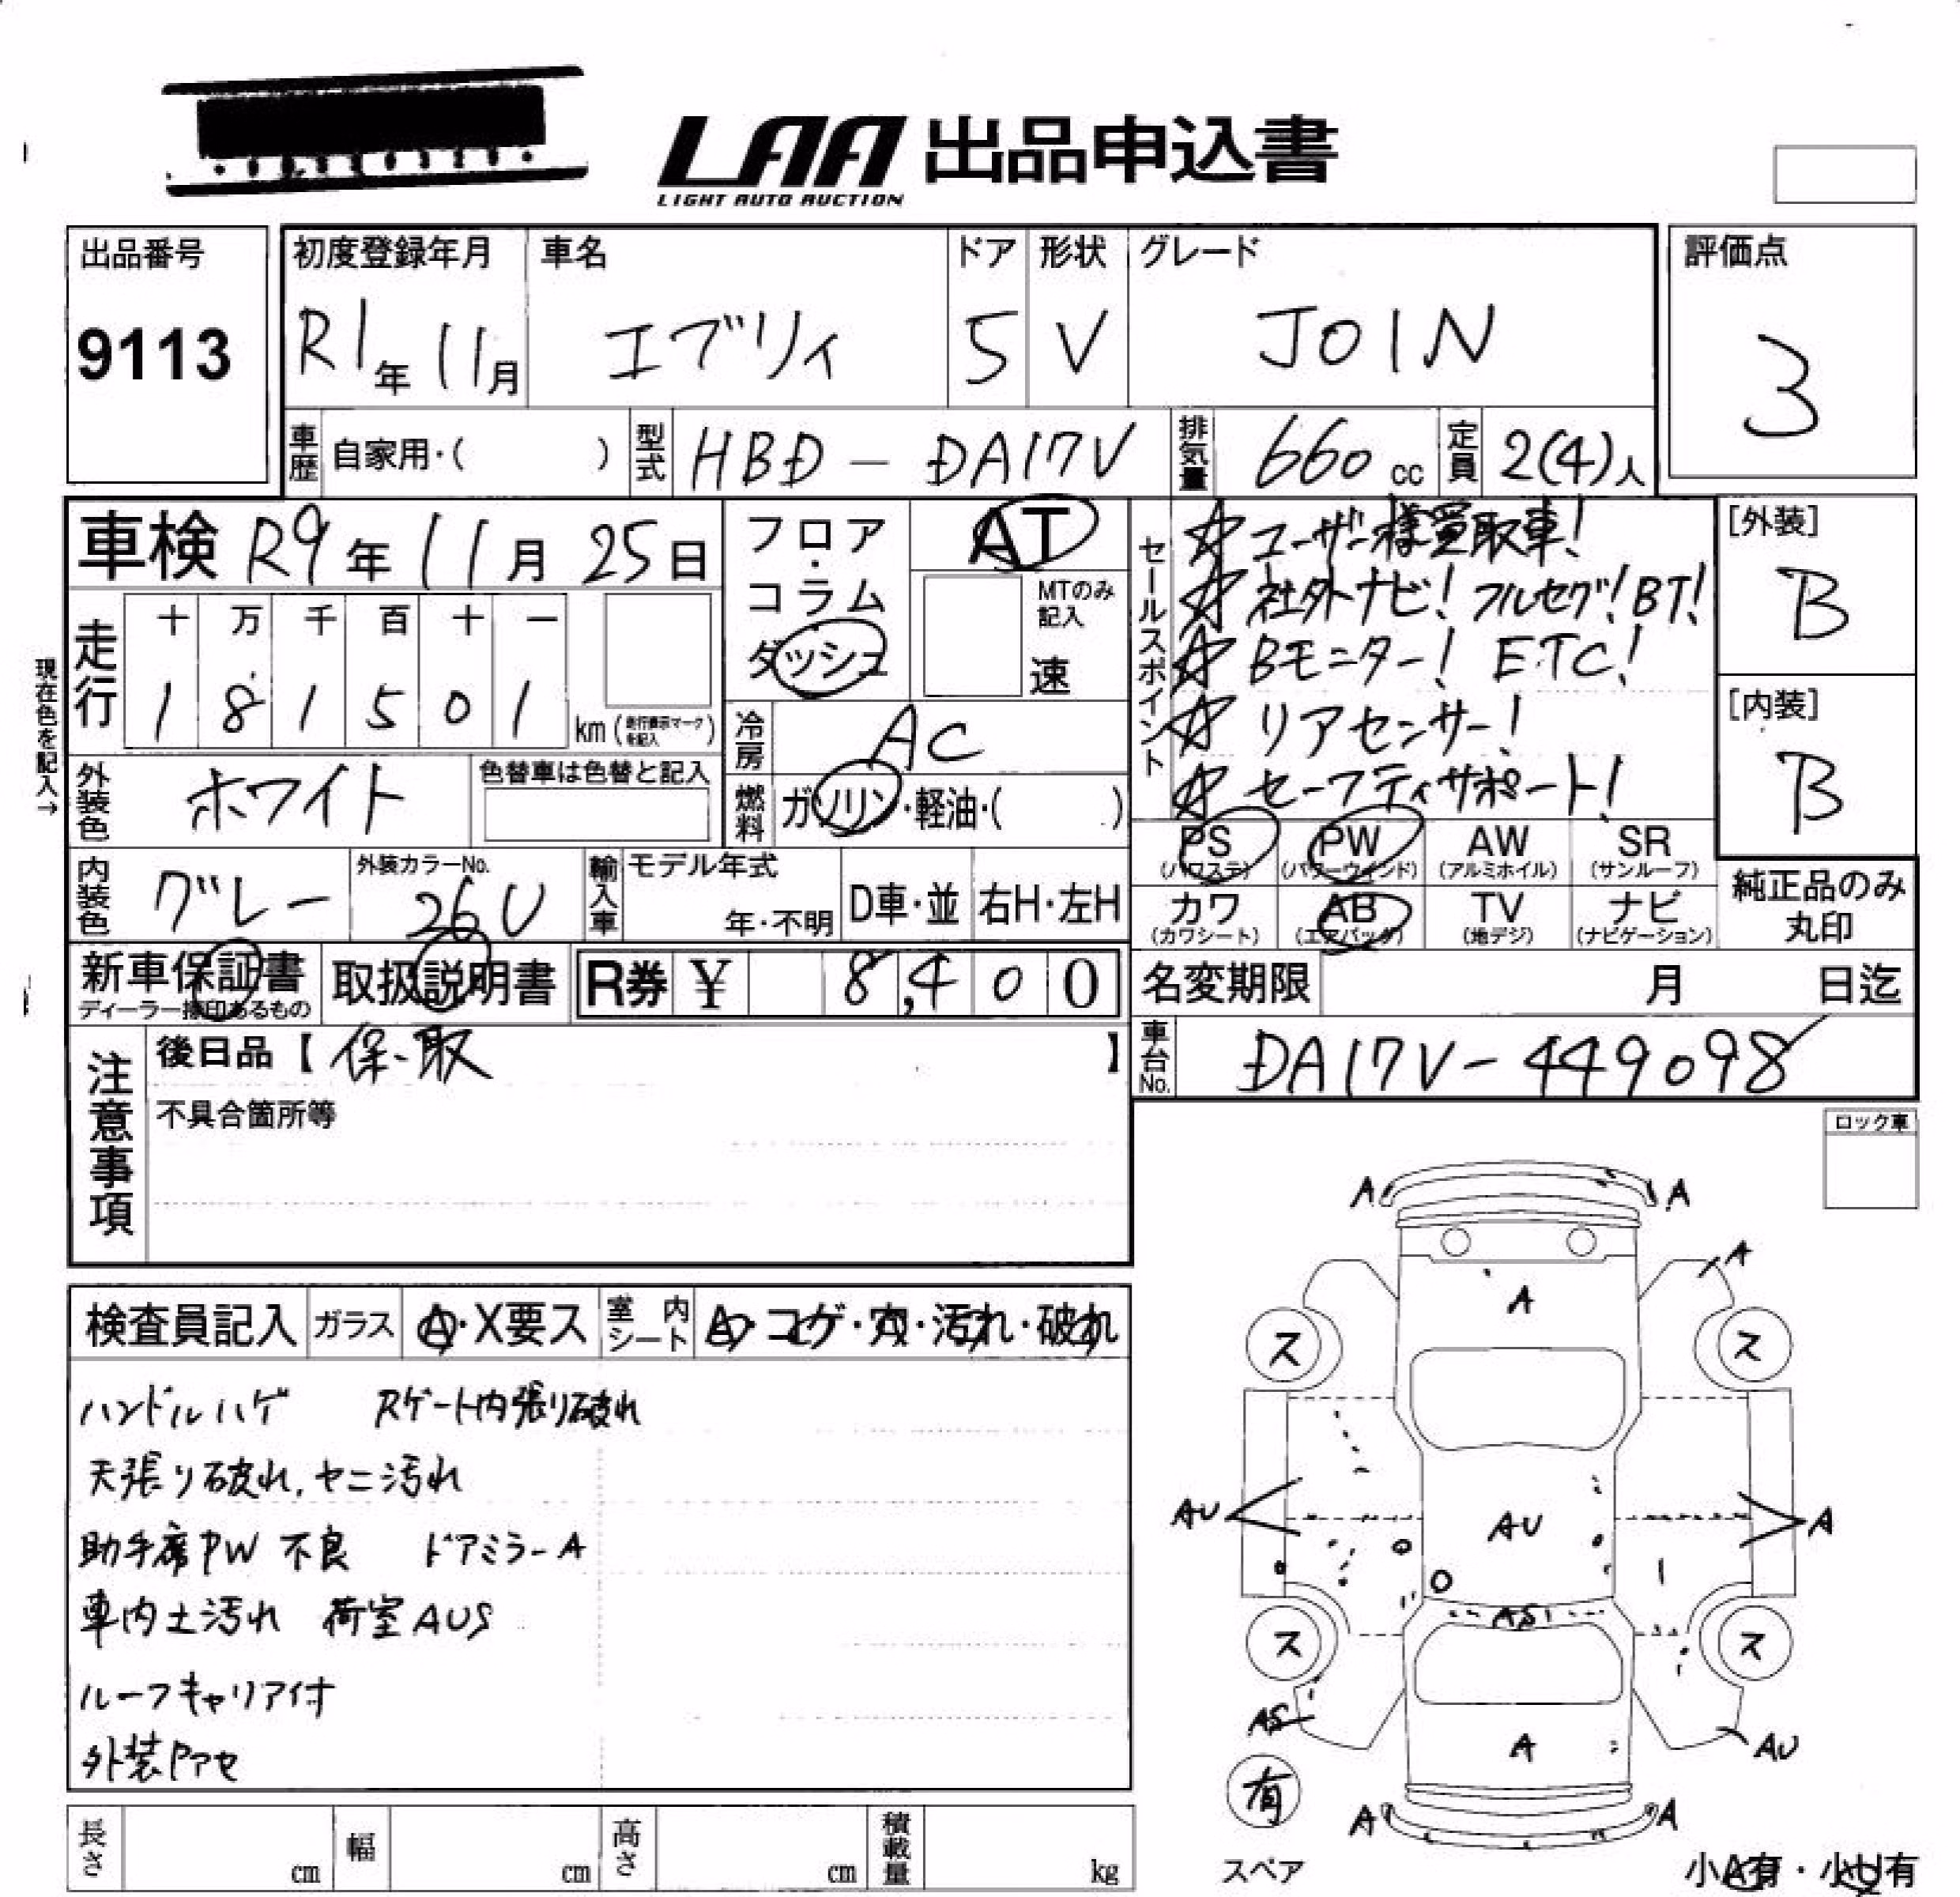 LAA 出品申込書
LIGHT AUTO AUCTION
出品番号
9113
初度登録年月
R1年11月
車名
エブリィ
ドア
5
形状
V
グレード
JOIN
評価点
3
車歴 自家用・( )
型式 HBD-DA17V
排気量 660cc
定員 2(4)人
車検 R9年11月25日
走行
十 万 千 百 十 一
1 8 1 5 0 1 km(走行表示マークを記入)
現在色を記入→
フロア・コラム ダッシュ
AT
MTのみ記入
速
冷房 AC
燃料 ガソリン・軽油・( )
外装色 ホワイト
色替車は色替と記入
内装色 グレー
外装カラーNo.
26U
輸入車 モデル年式
年・不明
D車・並 右H・左H
セールスポイント
☆ユーザー様買取車!
☆社外ナビ!フルセグ!BT!
☆Bモニター! ETC!
☆リアセンサー!
☆セーフティサポート!
[外装]
B
[内装]
B
PS (パワステ) PW (パワーウインド) AW (アルミホイル) SR (サンルーフ)
カワ (カワシート) AB (エアバッグ) TV (地デジ) ナビ (ナビゲーション)
純正品のみ丸印
新車保証書
ディーラー捺印あるもの
取扱説明書
R券 ¥ 8,400
名変期限 月 日迄
車台No. DA17V-449098
注意事項
後日品【保、取】
不具合箇所等
ロック車
検査員記入 ガラス A・X要ス 室内シート A・コゲ・穴・汚れ・破れ
ハンドルハゲ Rゲート内張り破れ
天張り破れ、ヤニ汚れ
助手席PW不良 ドアミラーA
車内土汚れ 荷室AUS
ルーフキャリア付
外装Pアセ
A A
A
A
ス ス
AU AU A
AS
ス ス
AS A AU
有
A A
スペア
小A有・小U有
長さ cm 幅 cm 高さ cm 積載量 kg